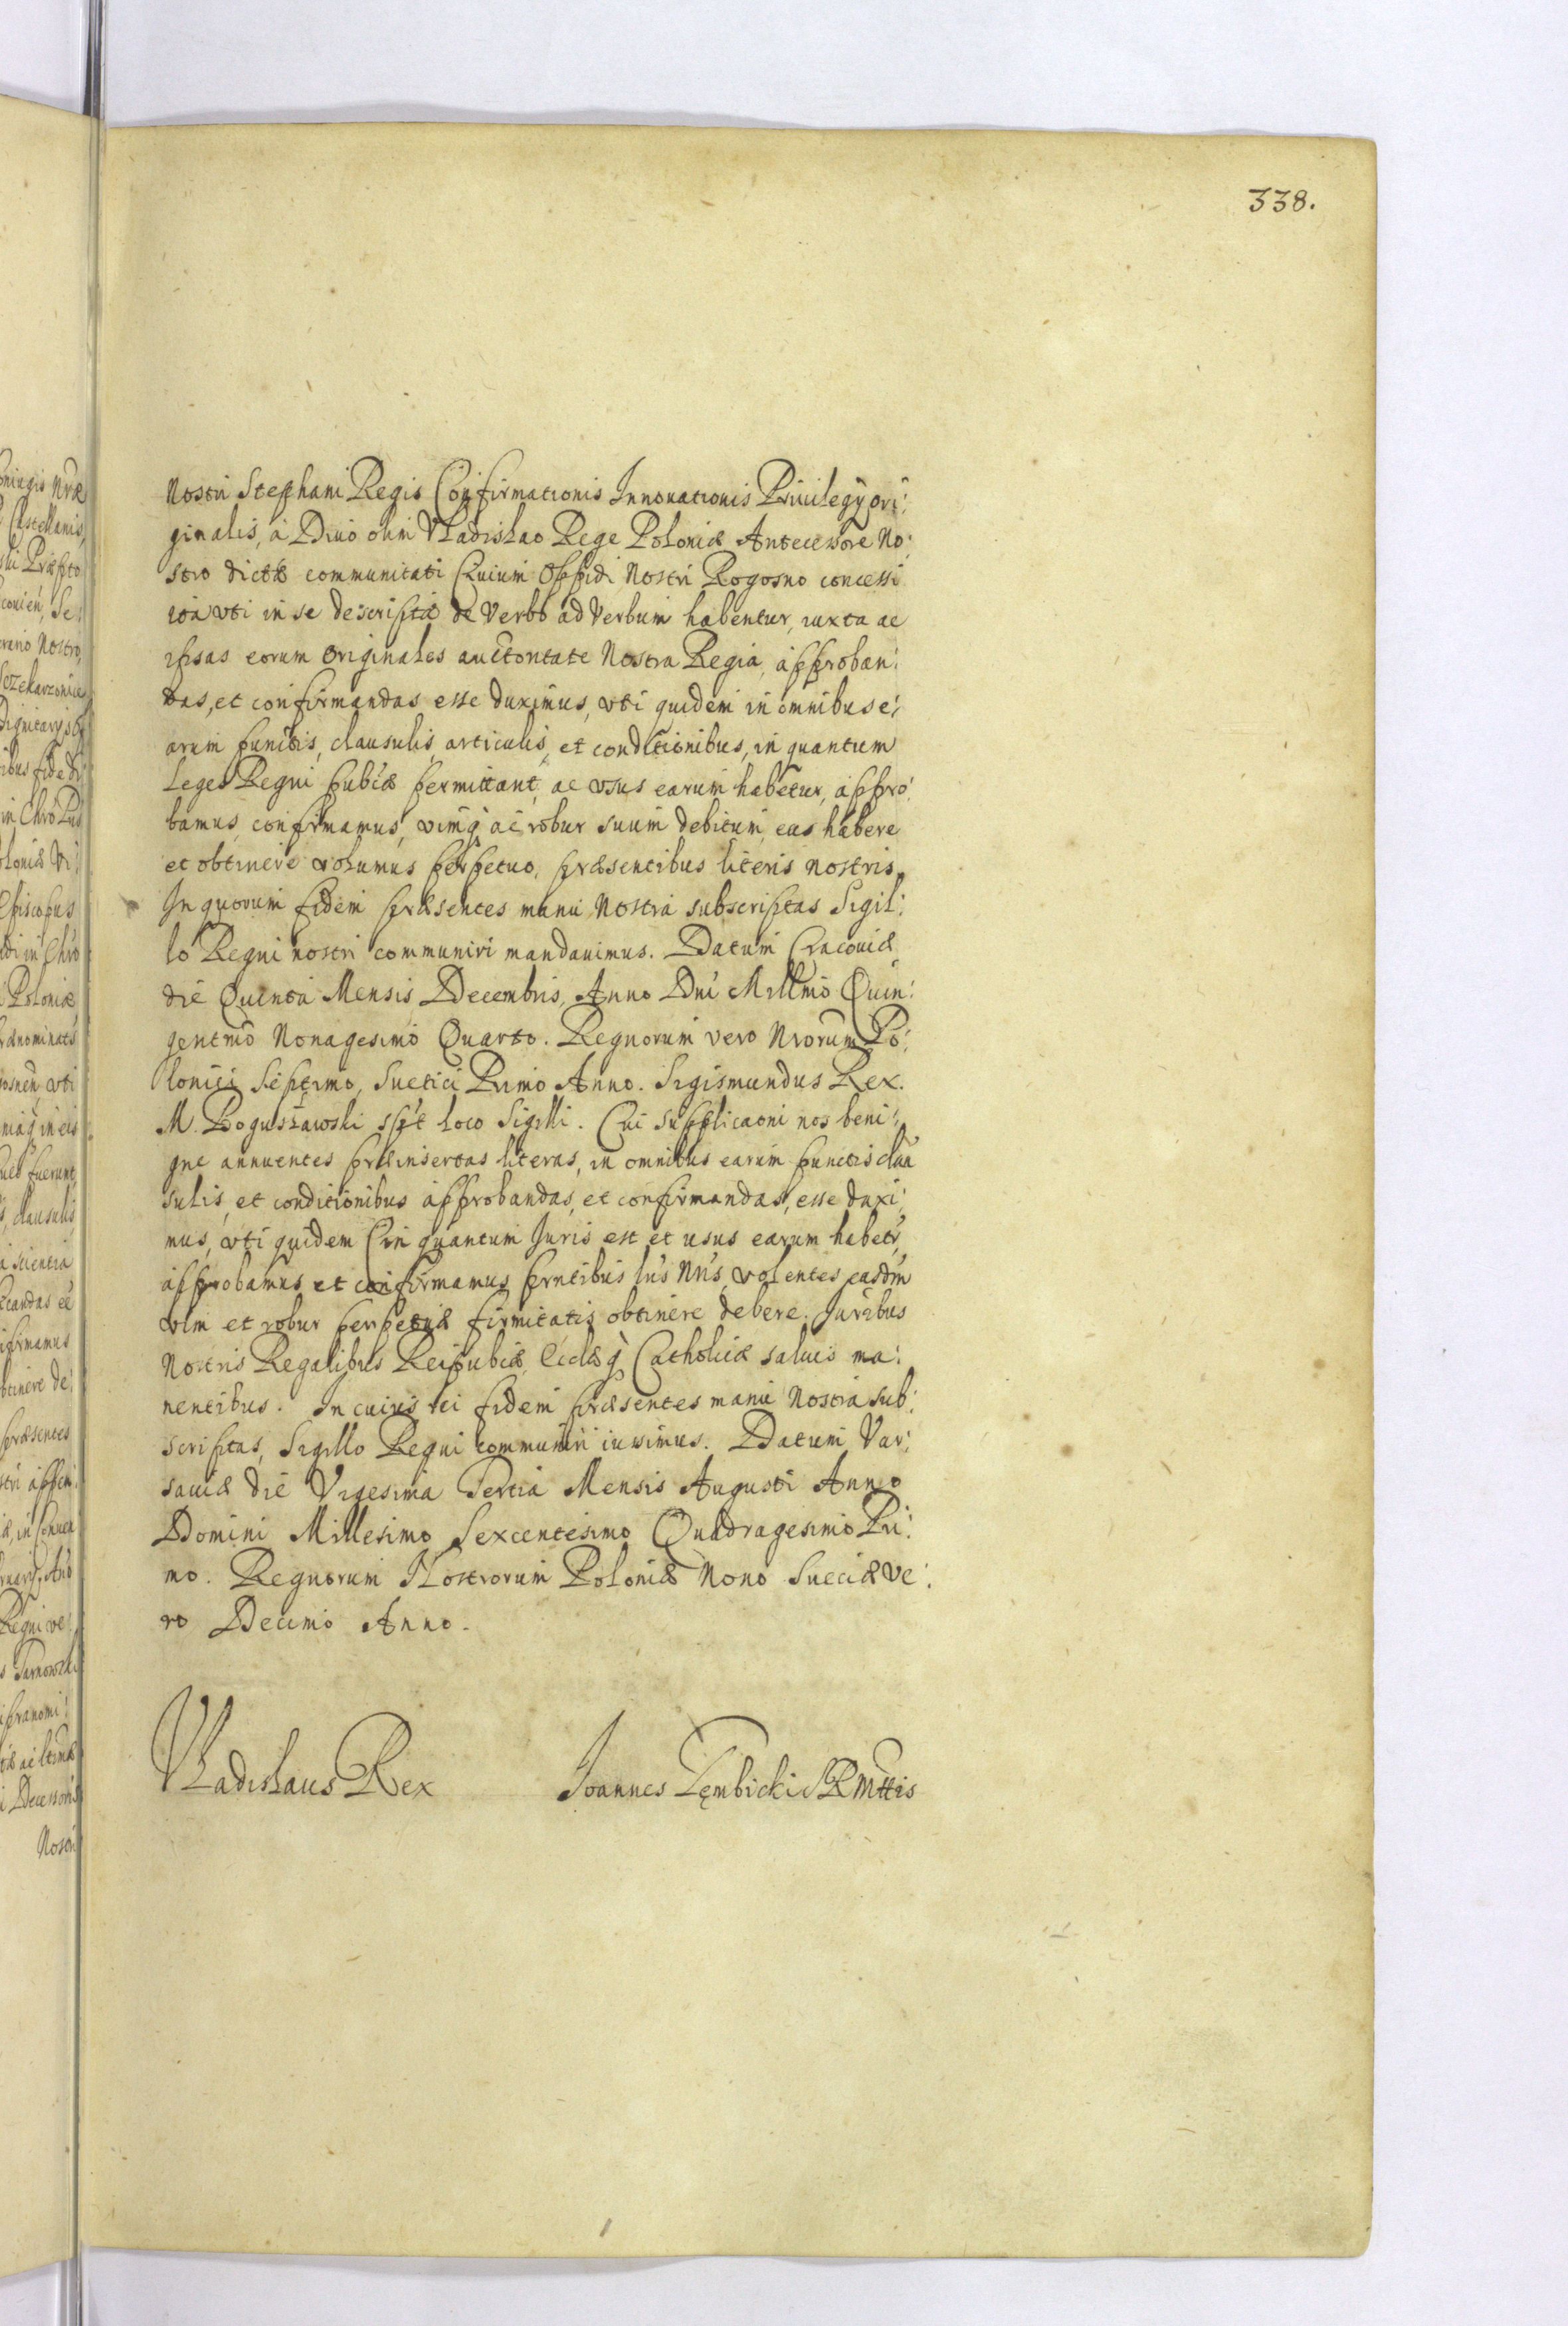 338.
Nostri Stephani Regis Confirmationis Innovationis Privilegij ori:
ginalis, à Divo olim Vladislao Rege Poloniæ Antecessore No:
stro dictæ communitati Civium Oppidi Nostri Rogosno concessi
ita uti in se descriptæ de Verbo ad Verbum habentur, iuxta ac
ipsas eorum Originales auctoritate Nostra Regia, approban:
das, et confirmandas esse duximus, uti quidem in omnibus e:
arum punctis, clausulis, articulis, et conditionibus, in quantum
Leges Regni pubcæ permittant, ac usus earum habetur, appro:
bamus, confirmamus, vimq ac robur suum debitum eas habere
et obtinere volumus perpetuo, præsentibus literis nostris.
In quorum fidem præsentes manu Nostra subscriptas Sigil:
lo Regni nostri communiri mandavimus. Datum Cracoviæ
die Quinta Mensis Decembris, Anno Dni Millmo Quin:
gentmo Nonagesimo Quarto. Regnorum vero Nrorum Po:
lonici Septimo, Suetici Primo Anno. Sigismundus Rex.
M. Boguszławski sspt Loco Sigilli. Cui supplicaoni nos beni:
gne annuentes præinsertas literas, in omnibus earum punctis clau
sulis, et conditionibus approbandas, et confirmandas, esse duxi:
mus, uti quidem in quantum Juris est et usus earum habetr,
approbamus et confirmamus prntibus lris Nris, volentes easdm
vim et robur perpetuæ firmitatis obtinere debere. Juribus
Nostris Regalibus Reipubcæ, Ecclæq Catholicæ salvis ma:
nentibus. In cuius rei fidem præsentes manu Nostra sub:
scriptas, Sigillo Regni communiri iussimus. Datum Var:
saviæ die Vigesima Tertia Mensis Augusti Anno
Domini Millesimo Sexcentesimo Quadragesimo Pri:
mo. Regnorum Nostrorum Poloniæ Nono Sueciæ ve:
ro Decimo Anno.
Vladislaus Rex Joannes Gembicki SRMttis